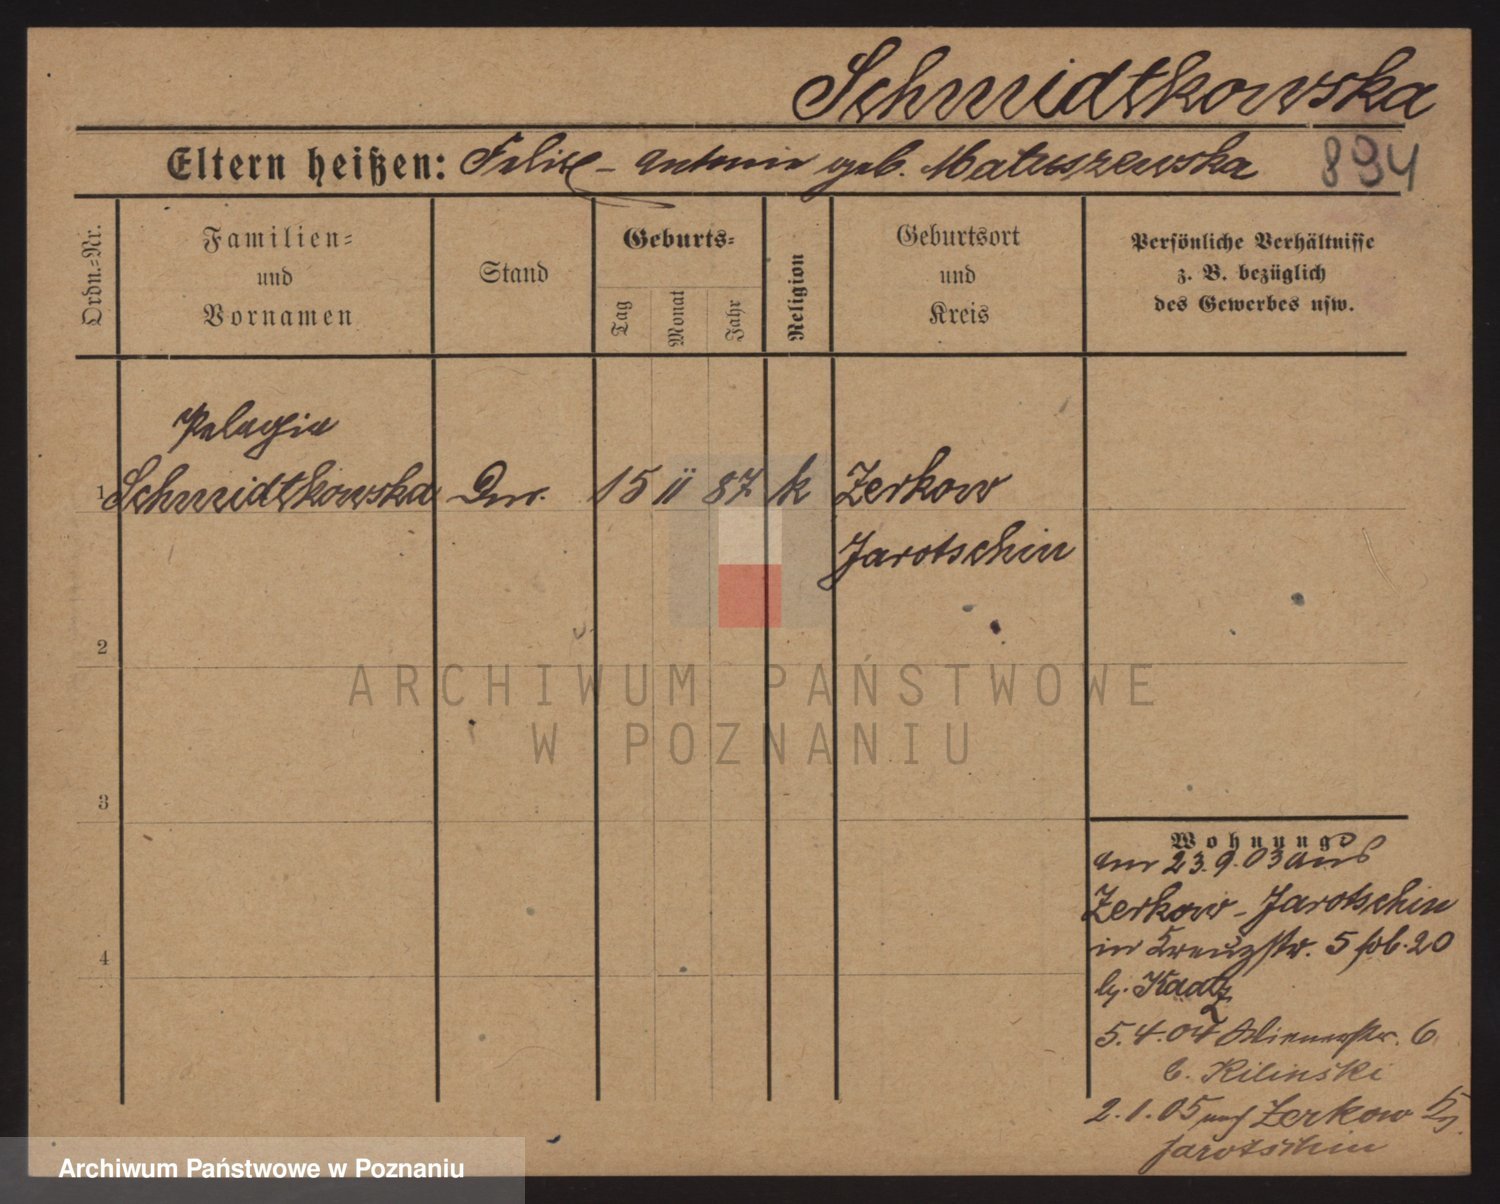 Schmidtkowska
Eltern heißen: Felix - Antonie geb. Matuszewska 894
Ordn.-Nr.
Familien-
und
Vornamen
Stand
Geburts-
Tag
Monat
Jahr
Religion
Geburtsort
und
Kreis
Persönliche Verhältnisse
z. B. bezüglich
des Gewerbes usw.
Pelagia
1 Schmidtkowska 15 II 87 k Zerkow
Jarotschin
2
3
4
Wohnung
am 23.9.03 aus
Zerkow - Jarotschin
in Kreuzstr. 5 20
b. Kaatz
5.4.04 Wienerstr. 6
b. Kilinski
2.1.05 nach Zerkow
Jarotschin
ARCHIWUM PAŃSTWOWE
W POZNANIU
Archiwum Państwowe w Poznaniu